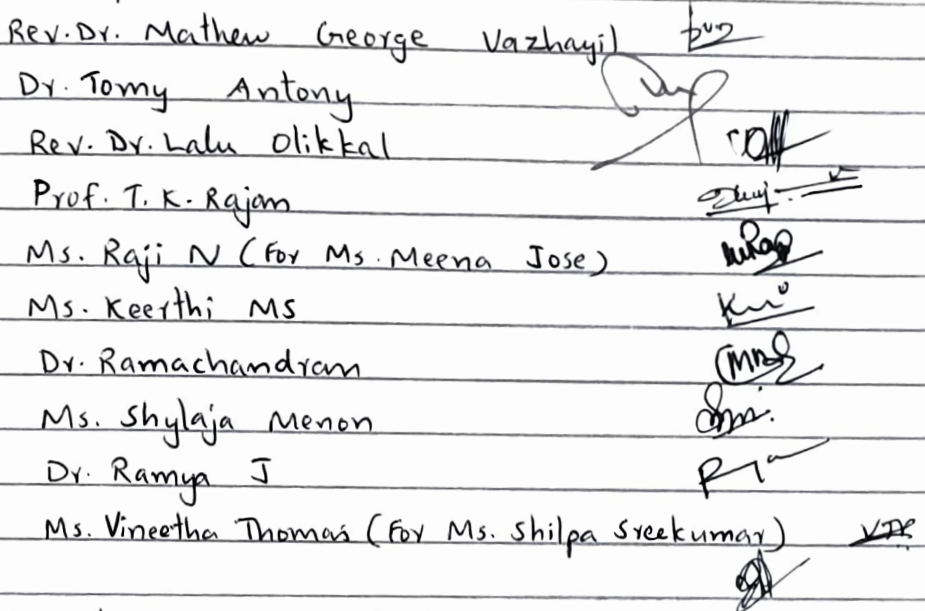 Rev. Dr. Mathew George Vazhayil
Dr. Tomy Antony
Rev. Dr. Lalu Olikkal
Prof. T. K. Rajan
Ms. Raji N (For Ms. Meena Jose)
Ms. Keerthi MS
Dr. Ramachandran
Ms. Shylaja Menon
Dr. Ramya J
Ms. Vineetha Thomas (For Ms. Shilpa Sreekumar)